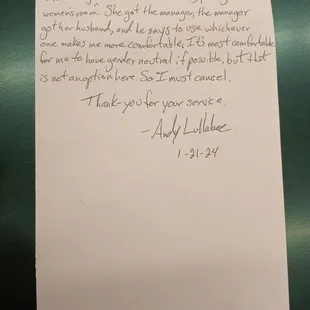 women's room." She got the manager, the manager
got her husband, and he says to use whichever
one makes me more comfortable. It's most comfortable
for me to have gender neutral if possible, but that
is not an option here. So I must cancel.
Thank-you for your service.
-Andy Lullabee
1-21-24